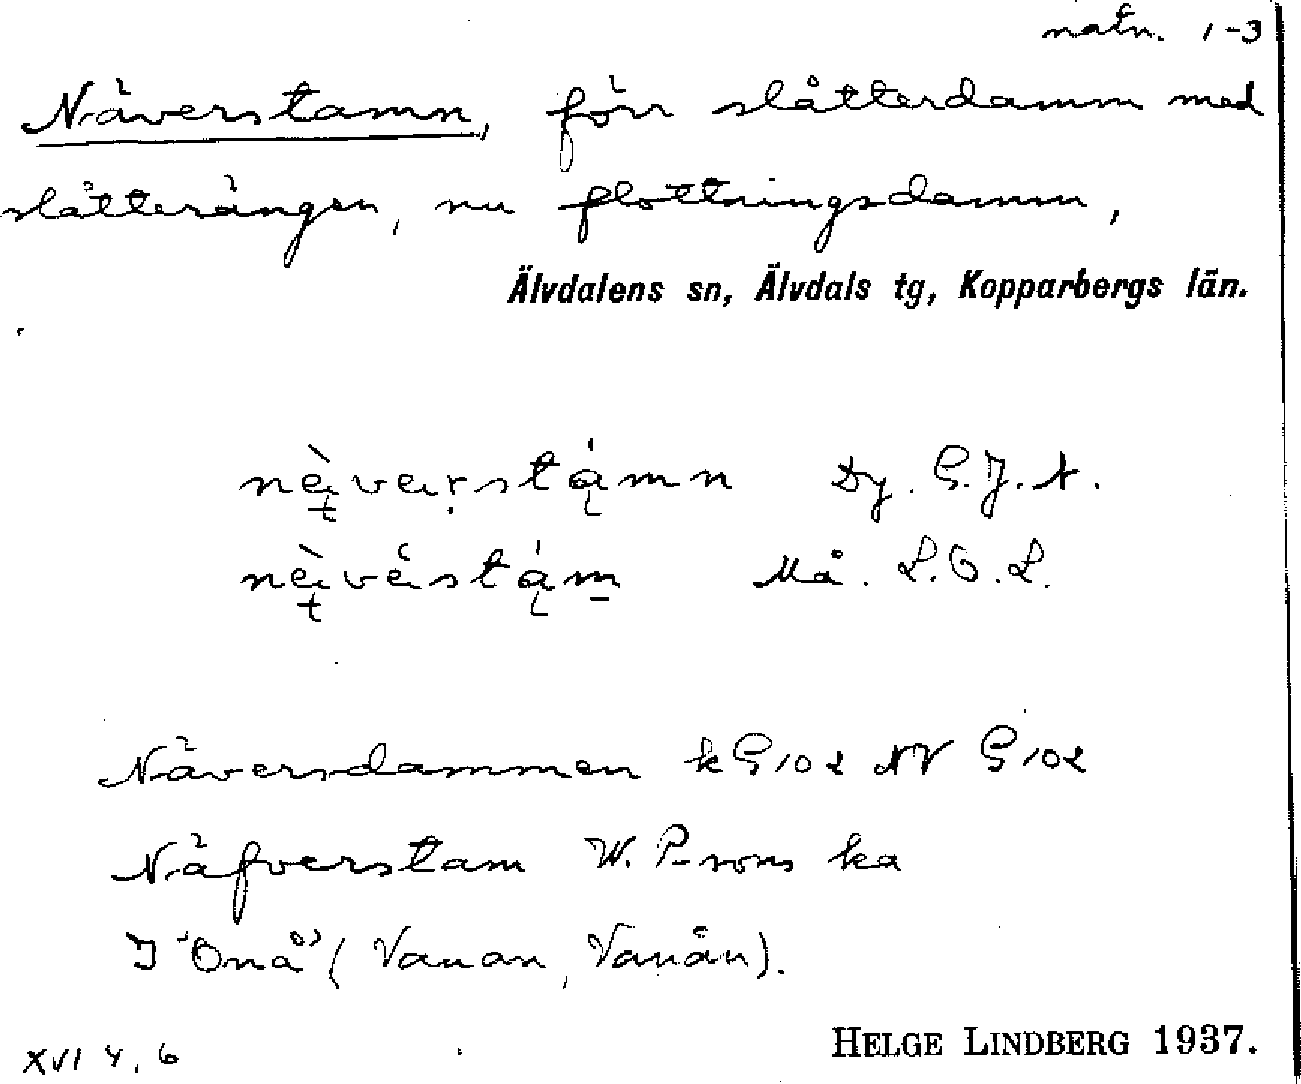 natn. 1-3
Näverstamn, förr slåtterdamm med
slåtterängen, nu flottningsdamm,
Älvdalens sn, Älvdals tg, Kopparbergs län.
Dy. G.J.A.
Må. L.O.L.
Näversdammen kG102 NV G102
Näfverstam W. P-sons ka
I "Onå" (Vanan, Vanån).
XVI 4, 6
HELGE LINDBERG 1937.